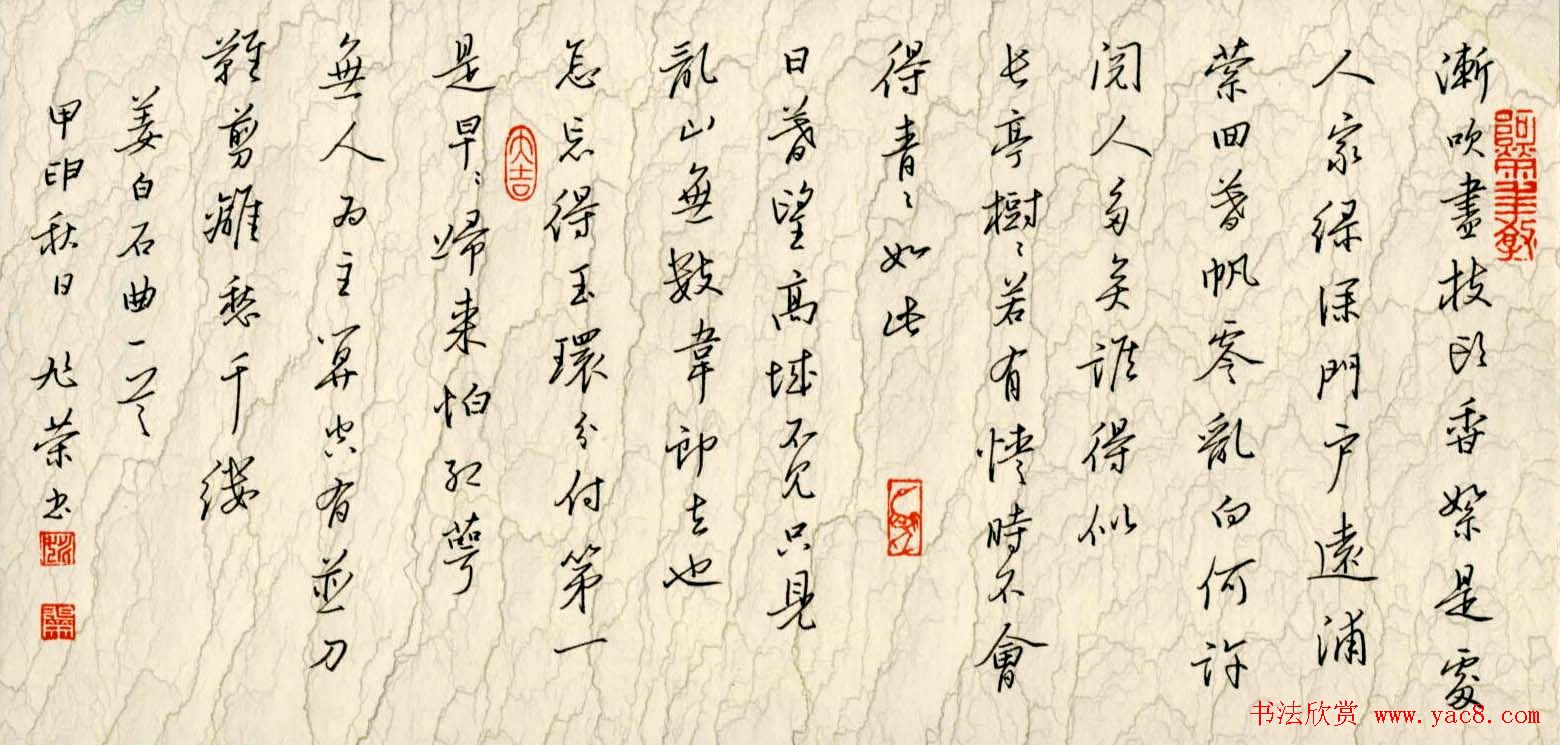 漸吹盡枝頭香絮是處
人家綠深門戶遠浦
縈回暮帆零亂向何許
閱人多矣誰得似
長亭樹〻若有情時不會
得青〻如此
日暮望高城不見只見
亂山無數韋郎去也
怎忘得玉環分付第一
是早〻歸來怕紅萼
無人為主算空有並刀
難剪離愁千縷
姜白石曲一首
甲申秋日 榮書
大吉
书法欣赏 www.yac8.com